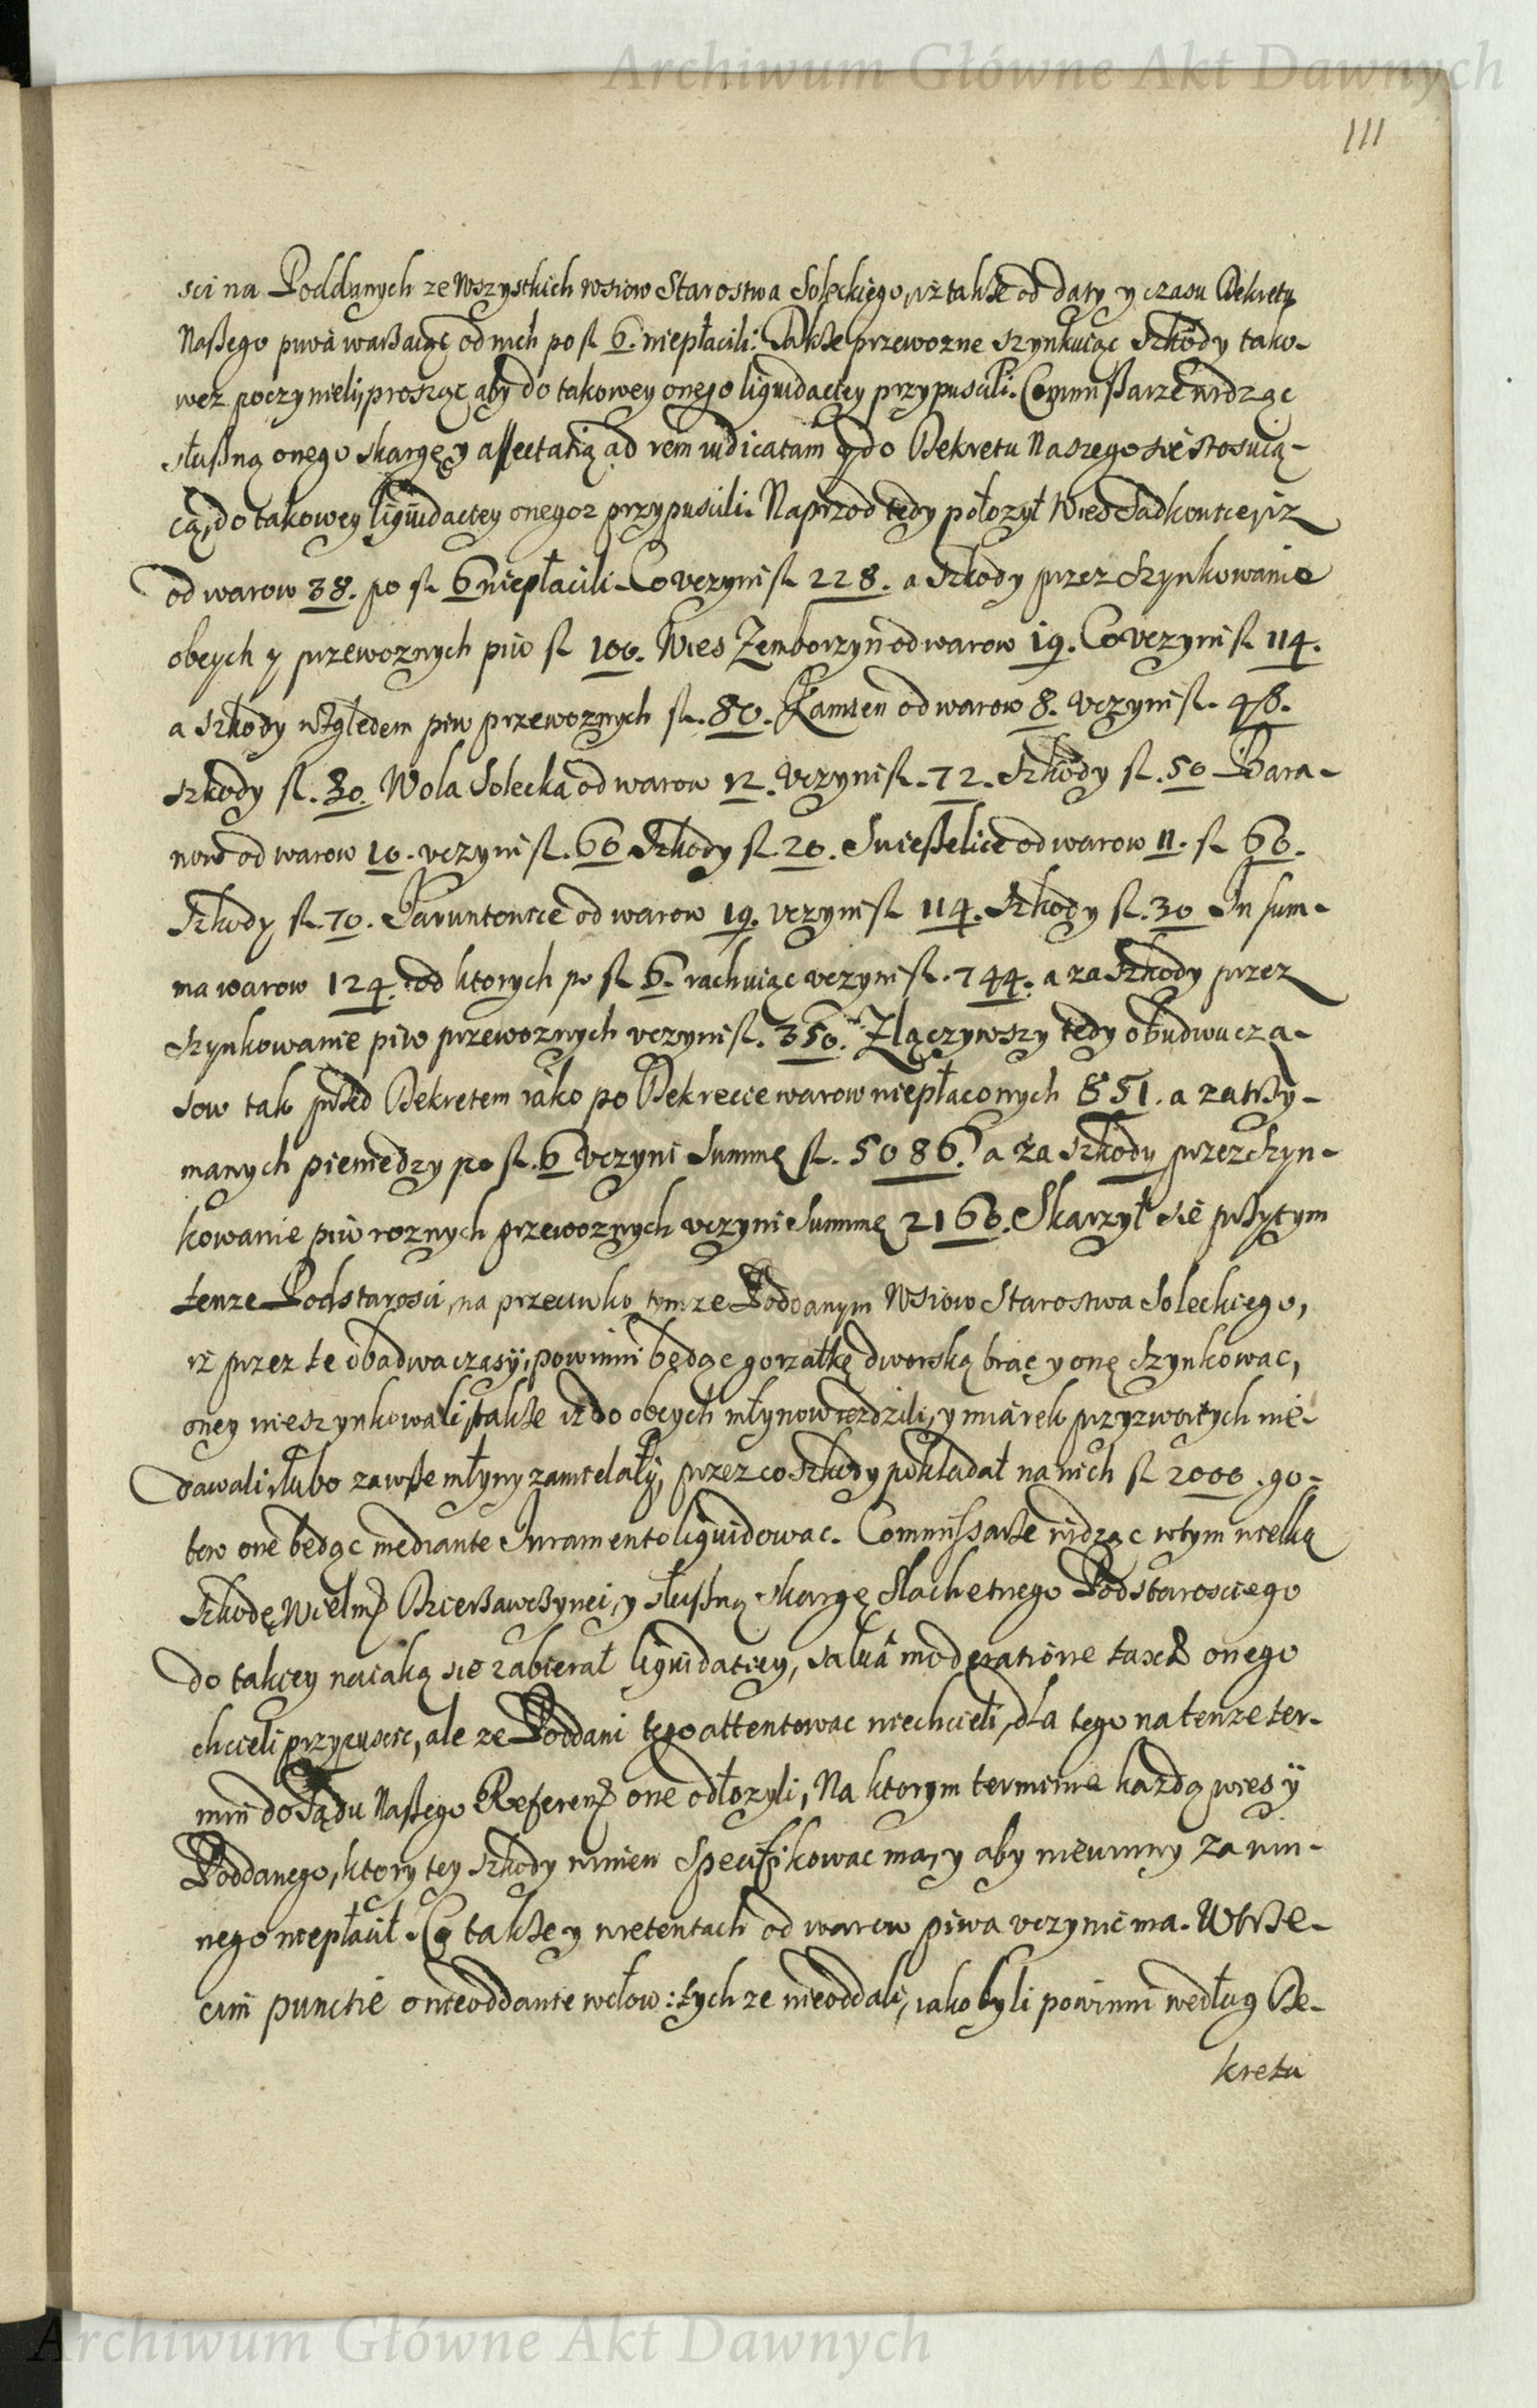 Archiwum Główne Akt Dawnych
111
sci na Poddanych ze Wszystkich wsiow Starostwa Soleckiego, iż także od daty y czasu Dekretu
Naszego piwa warzaiąc od nich po fl. 6. niepłacili. Także przewozne szynkuiąc szkody tako-
wez poczynieli, prosząc aby do takowey onego liquidactey przypuscili. Commissarze widząc
słuszną onego skargę y affectatią ad rem iudicatam y do Dekretu Naszego się stosuią-
cą, do takowey liquidactey onegoz przypuscili. Naprzod tedy położył Wies Sadkowice, iz
od warow 38. po fl. 6 niepłacili. Co vczyni fl. 228. a szkody przez szynkowanie
obcych y przewoznych piw fl. 100. Wies Zemborzyn od warow 19. Co vczyni fl. 114.
a szkody względem piw przewoznych fl. 80. Kamien od warow 8. vczyni fl. 48.
szkody fl. 30. Wola Solecka od warow 12. vczyni fl. 72. szkody fl. 50 Bara-
now od warow 10. vczyni fl. 60 szkody fl. 20. Swieszelice od warow 11. fl. 60.
szkody fl. 70. Pawuntowice od warow 19. vczyni fl. 114. szkody fl. 30 In sum-
ma warow 124. od ktorych po fl. 6. rachuiąc vczyni fl. 744. a za szkody przez
szynkowanie piw przewoznych vczyni fl. 350. Złączywszy tedy obudwu cza-
sow tak przed Dekretem iako po Dekrecie warow niepłaconych 851. a zatrzy-
manych pieniedzy po fl. 6 vczyni Summę fl. 5086. a za szkody przez szyn-
kowanie piw roznych przewoznych vczyni Summę 2160. Skarzył się przytym
tenze Podstarosci, na przeciwko tymze Poddanym Wsiow Starostwa Soleckiego,
iż przez te obadwa czasy, powinni będąc gorzałkę dworską brac y onę szynkowac,
oney nieszynkowali, także iż do obcych młynow iezdzili, y miarek przyzwoitych nie-
dawali, lubo zawsze młyny zamielały, przez co szkody pokładał na nich fl. 2000. go-
tow one będąc mediante Iuramento liquidowac. Commissarze widząc wtym wielką
szkodę Wielm. y słuszną skargę Slachetnego Podstarosciego
do takiey naiaką się zabierał liquidatiey, salva moderatione taxae onego
chcieli przypuscic, ale ze Poddani tego attentowac niechcieli, dla tego na tenze ter-
min do Sądu Naszego Referen. one odłozyli, Na ktorym terminie kazdą wies y
Poddanego, ktory tey szkody winien specifikowac ma, y aby niewinny za win-
nego niepłacił. Co także y wretentach od warow piwa vczynic ma. Wtrze-
cim punctie o nieoddanie wołow: tych ze nieoddali, iako byli powinni według De-
kretu
Archiwum Główne Akt Dawnych